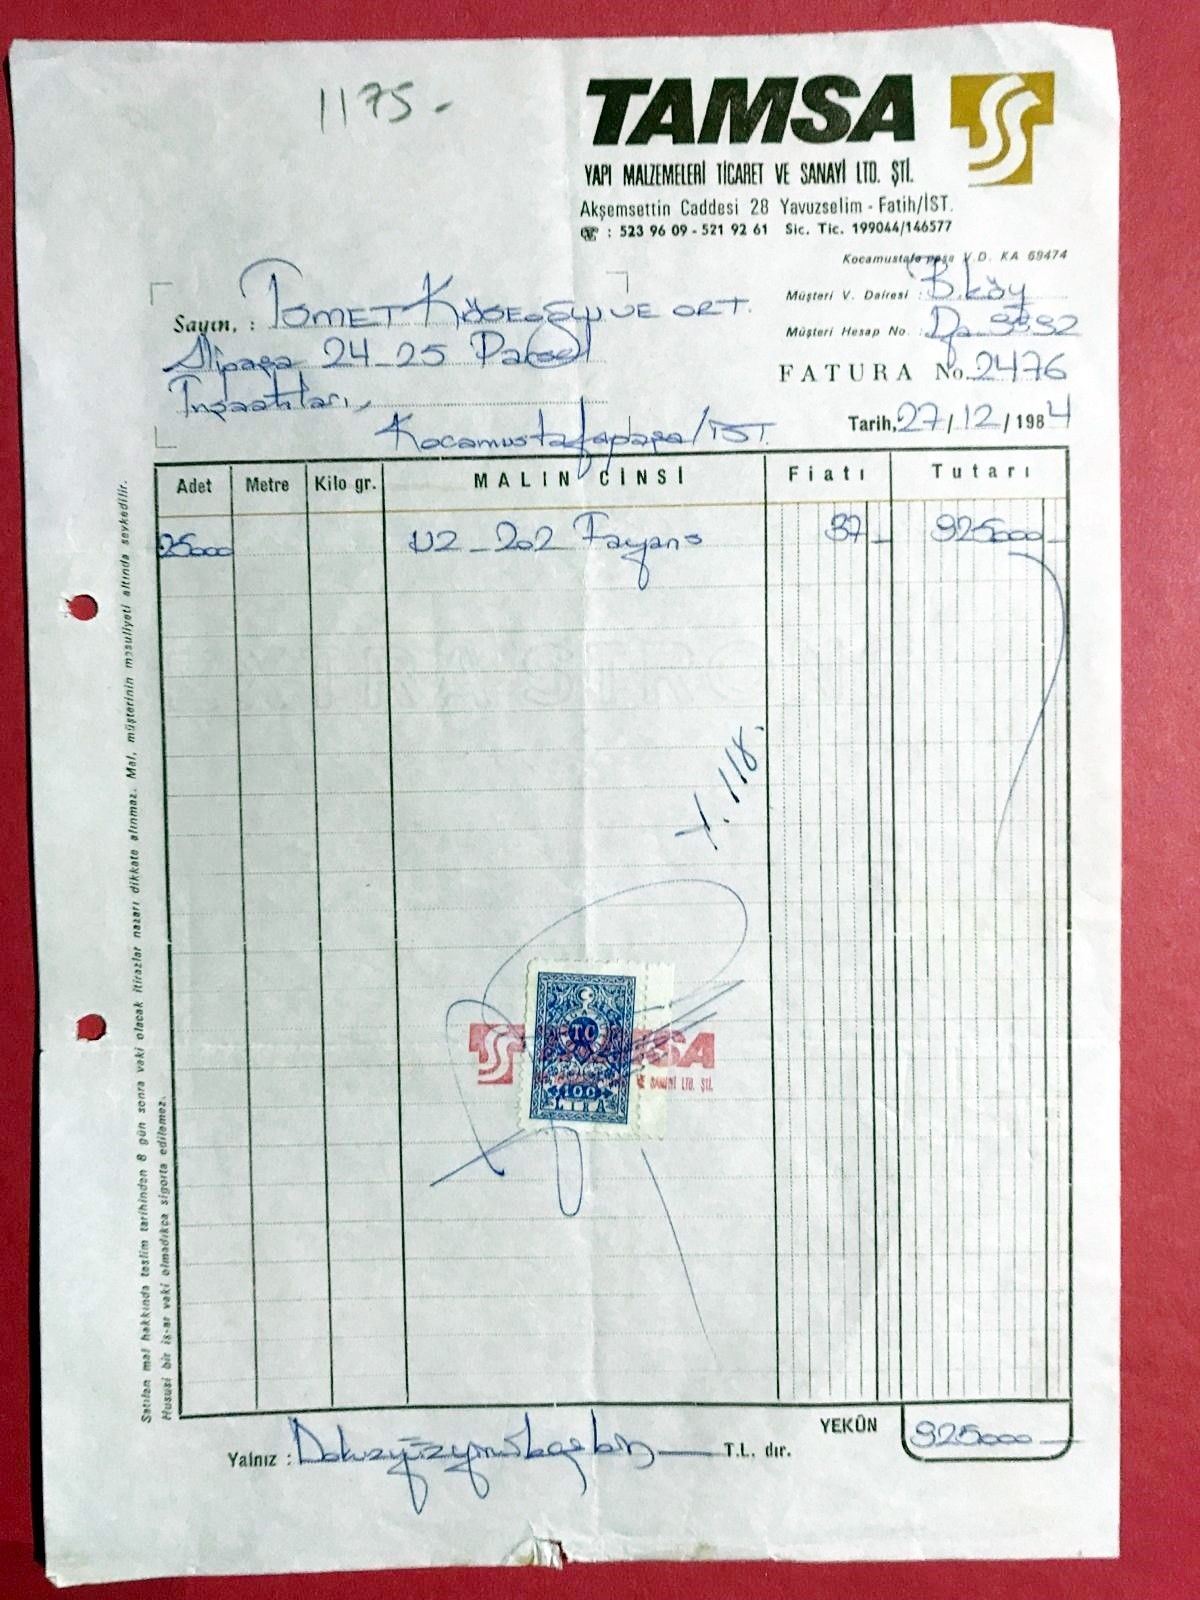 1175-
TAMSA
YAPI MALZEMELERİ TİCARET VE SANAYİ LTD. ŞTİ.
Akşemsettin Caddesi 28 Yavuzselim - Fatih/İST.
☎ : 523 96 09 - 521 92 61 Sic. Tic. 199044/146577
Kocamustafa paşa V.D. KA 69474
Müşteri V. Dairesi : B.köy
Müşteri Hesap No. :
FATURA No. 2476
Tarih, 27/12/1984
Sayın, : İSMET KÖSEOĞLU VE ORT.
Alipaşa 24-25 Parsel
İnşaatları,
Kocamustafapaşa/İST.
Adet Metre Kilo gr. MALIN CİNSİ Fiatı Tutarı
25000 202 Fayans 37- 925000-
118.
TC
100
LİRA
TAMSA
VE SANAYİ LTD. ŞTİ.
YEKÛN 925000-
Yalnız : Dokuzyüzyirmibeşbin T.L. dır.
Satılan mal hakkında teslim tarihinden 8 gün sonra vaki olacak itirazlar nazarı dikkate alınmaz. Mal, müşterinin mesuliyeti altında sevkedilir.
Hususi bir iş-ar vaki olmadıkça sigorta edilemez.